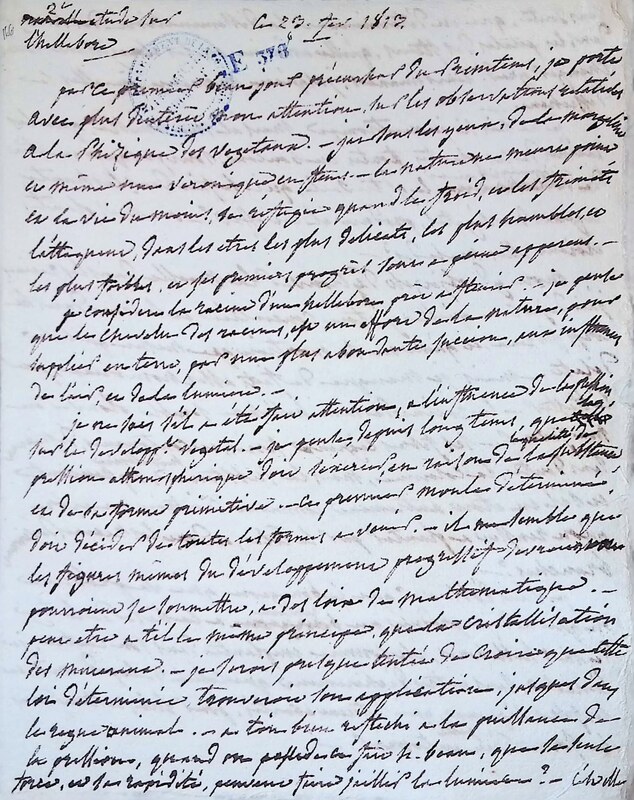 2e étude sur
Ce 23. fev. 1813.
l'hellebore
F 573
par ce premier beau jour précurseur du printems, je porte
avec plus d'interêt mon attention sur les observations relatives
a la phizique des vegetaux. - j'ai sous les yeux, de la
ce même une veronique en fleurs. - la nature ne meure jamais
et la vie du moins, se réfugie quand le froid, et les frimats
l'attaquent, dans les etres les plus delicats, les plus humbles, et
les plus faibles, et ses premiers progrès sont a peine apperçus. -
je considère la racine d'un hellebore prêt a fleurir. - je pense
que le chevelu des racines, est un effort de la nature, pour
suppléer en terre, par une plus abondante succion, aux influences
de l'air et de la lumiere. -
je ne sais s'il a été fait attention, a l'influence de la pression
sur le développt. vegetal. - je pense depuis long tems, que la
pression athmospherique doit s'exercer en raison de la qualité de substance
et de sa forme primitive. - ce premier moule determiné
doit décider de toutes les formes a venir. - il me semble que
les figures mêmes du développement progressif des
pourroient se soumettre, a des loix de mathematique. -
peut etre a t'il le même principe, que la cristallisation
des mineraux. - je serois presque tentée de croire que cette
loi determinée trouveroit son application, jusques dans
le regne animal. - a t'on bien réflechi a la puissance de
la pression, quand on possede ce fait si beau, que la seule
force, et sa rapidité, peuvent faire jaillir la lumiere ? -